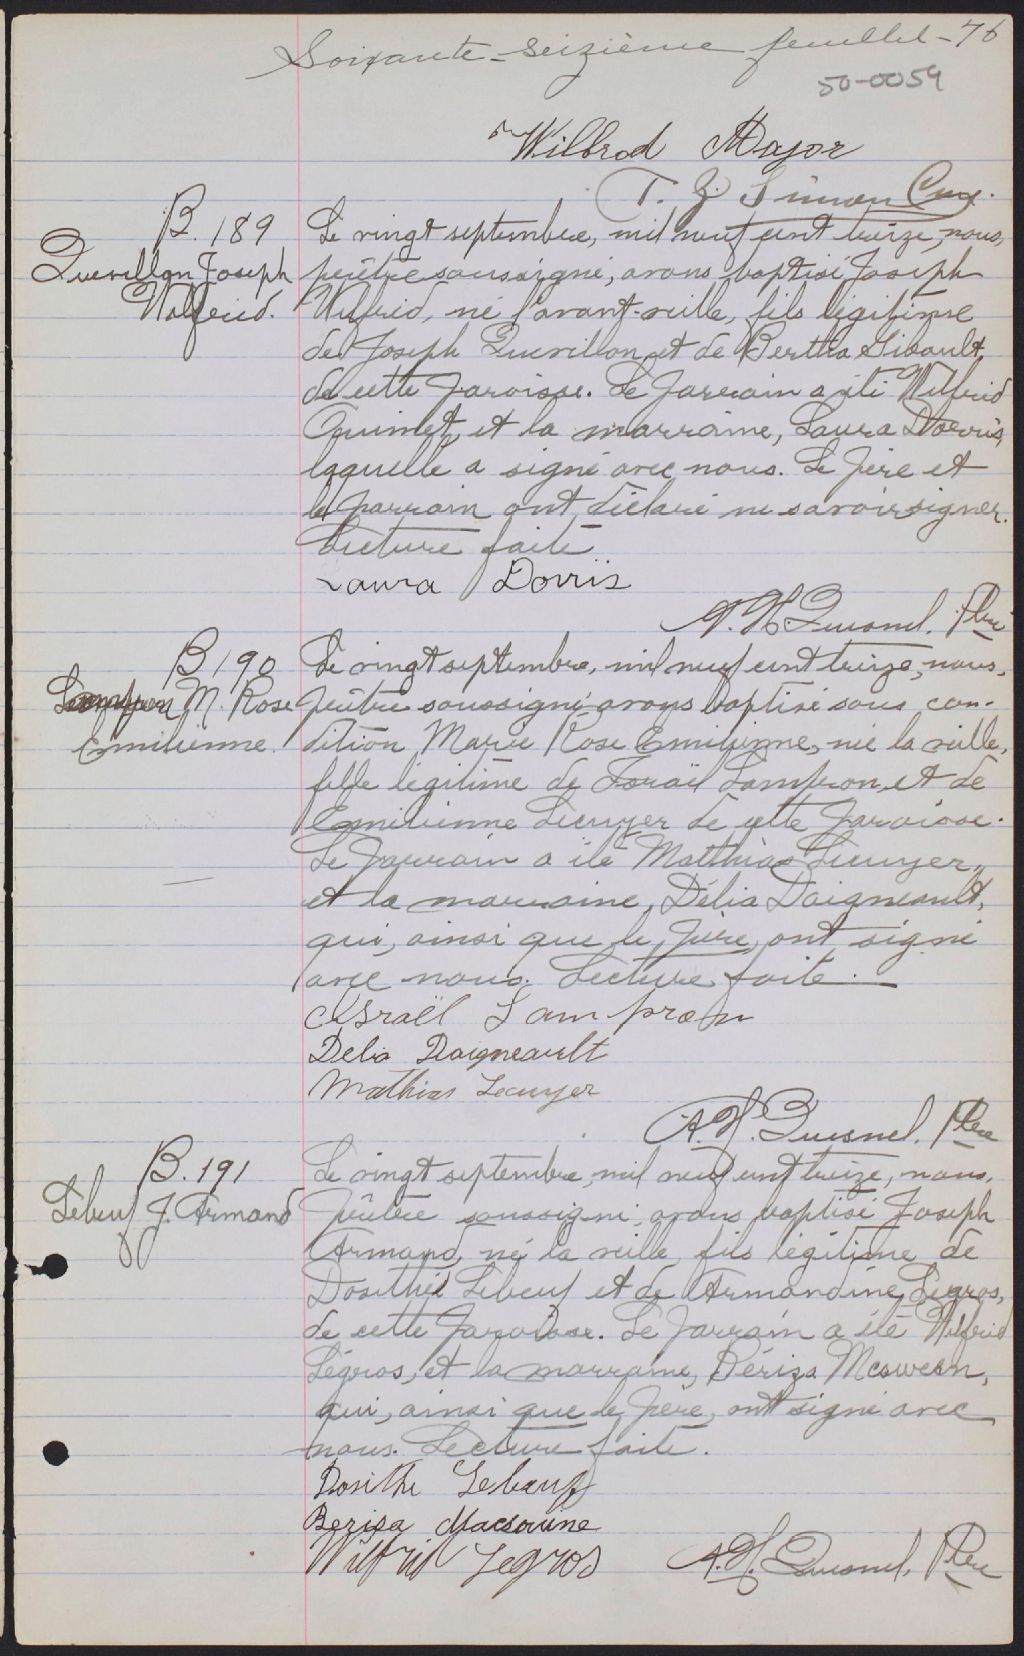 Soixante-seizième feuillet - 76
50-0059
Wilbrod Major
T. Z. Simon Cure.
B. 189
Quevillon Joseph
Wilfrid.
Le vingt septembre, mil neuf cent treize, nous,
prêtre soussigné, avons baptisé Joseph
Wilfrid, né l'avant-veille, fils légitime
de Joseph Quevillon, et de Bertha Gibault,
de cette paroisse. Le parrain a été Wilfrid
Ouimet, et la marraine, Laura Dorris,
laquelle a signé avec nous. Le père et
le parrain ont déclaré ne savoir signer.
Lecture faite
Laura Dorris
A. H. Quesnel, Ptre
B 190
Lampron M. Rose
Emilienne.
Le vingt septembre, mil neuf cent treize, nous,
prêtre soussigné avons baptisé sous con-
dition, Marie Rose Emilienne, née la veille,
fille légitime de Israël Lampron, et de
Emilienne Lecuyer de cette paroisse.
Le parrain a été Matthias Lecuyer,
et la marraine, Délia Daigneault,
qui, ainsi que le père, ont signé
avec nous. Lecture faite.
Israël Lampron
Delia Daigneault
Mathias Lecuyer
A. H. Quesnel, Ptre
B. 191
Lebeuf J. Armand
Le vingt septembre, mil neuf cent treize, nous,
prêtre soussigné, avons baptisé Joseph
Armand, né la veille, fils légitime de
Dosithé Lebeuf et de Armandine Legros,
de cette paroisse. Le parrain a été Wilfrid
Légros, et la marraine, Bériza Mcswean,
qui, ainsi que le père, ont signé avec
nous. Lecture faite.
Dosithe Lebeuf
Beriza Macswine
Wilfrid Legros
A. H. Quesnel, Ptre